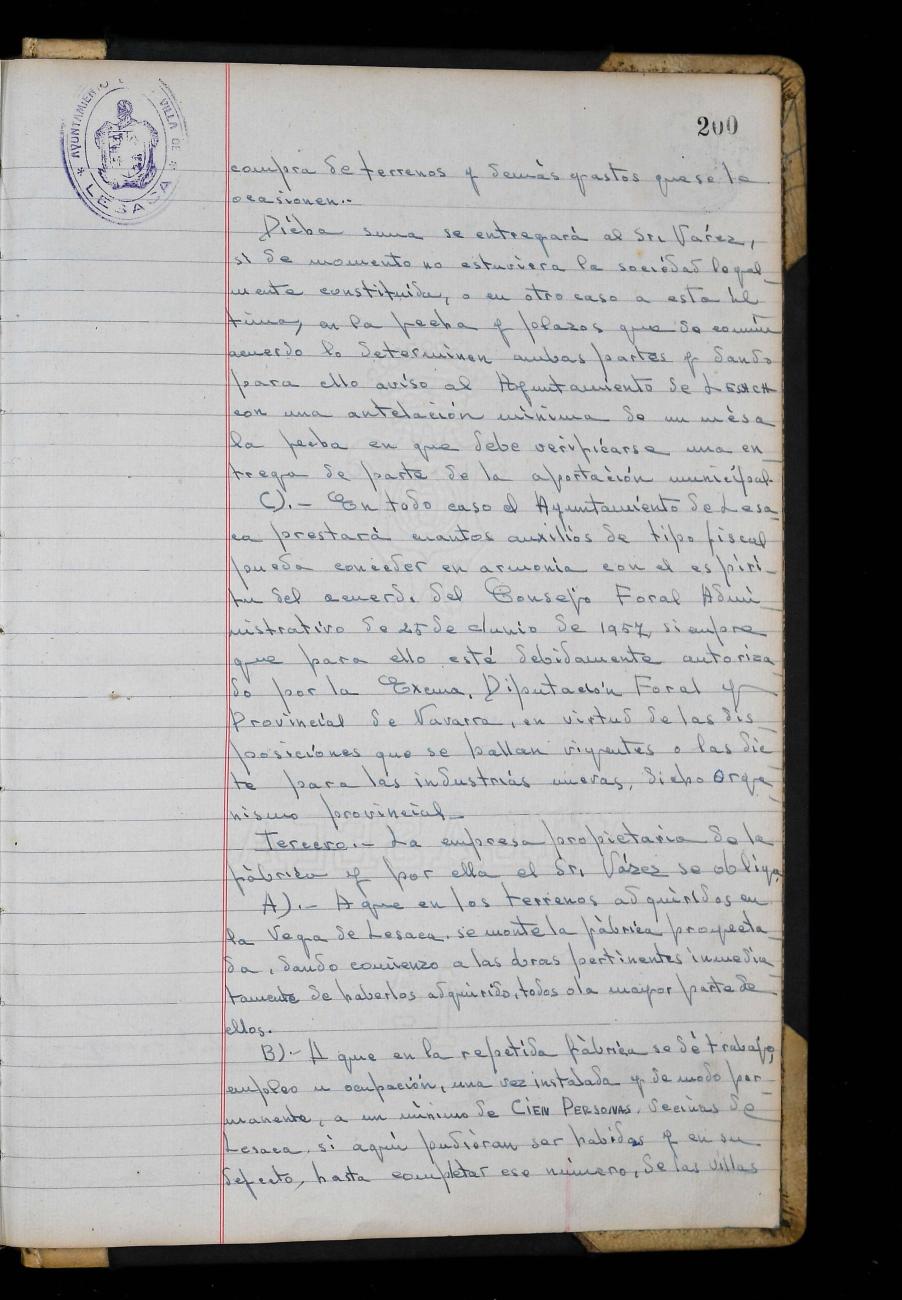 AYUNTAMIENTO VILLA DE
LESACA
200
compra de terrenos y demás gastos que se le
ocasionen.-
Dicha suma se entregará al Sr. Várez,
si de momento no estuviera la sociedad legal_
mente constituida, o en otro caso a esta úl_
tima, en la fecha y plazos que de común
acuerdo lo determinen ambas partes y dando
para ello aviso al Ayuntamiento de LESACA
con una antelación mínima de un mes a
la fecha en que debe verificarse una en_
trega de parte de la aportación municipal.
C).- En todo caso el Ayuntamiento de Lesa_
ca prestará cuantos auxilios de tipo fiscal
pueda conceder en armonía con el espíri_
tu del acuerdo del Consejo Foral Admi_
nistrativo de 25 de Junio de 1957, siempre
que para ello esté debidamente autoriza_
do por la Excma. Diputación Foral y
Provincial de Navarra, en virtud de las dis_
posiciones que se hallan vigentes o las dic_
te para las industrias nuevas, dicho Orga_
nismo provincial_
Tercero.- La empresa propietaria de la
fábrica y por ella el Sr. Várez se obliga
A).- A que en los terrenos adquiridos en
la Vega de Lesaca, se monte la fábrica proyecta_
da, dando comienzo a las obras pertinentes inmedia_
tamente de haberlos adquirido, todos o la mayor parte de
ellos.
B).- A que en la repetida fábrica se dé trabajo,
empleo u ocupación, una vez instalada y de modo per_
manente, a un mínimo de CIEN PERSONAS, vecinas de
Lesaca, si aquí pudieran ser habidas y en su
defecto, hasta completar ese número, de las villas